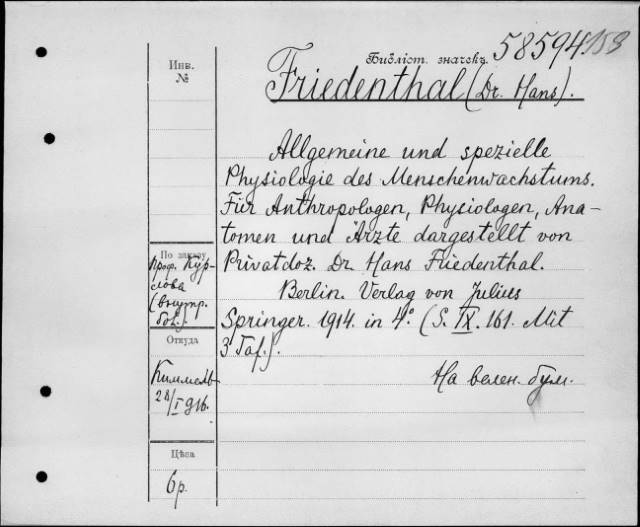 Библіот. значекъ 58594.
153
Инв.
№
Friedenthal (Dr. Hans).
Allgemeine und spezielle
Physiologie des Menschenwachstums.
Für Anthropologen, Physiologen, Ana-
tomen und Ärzte dargestellt von
Privatdoz. Dr. Hans Friedenthal.
Berlin. Verlag von Julius
Springer. 1914. in 4°. (S. IX. 161. Mit
3 Taf.).
На велен. бум.
По заказу
Проф. Кур-
лова
(внутр.
бол.).
Откуда
Киммель
28/I 916.
Цѣна
6 р.